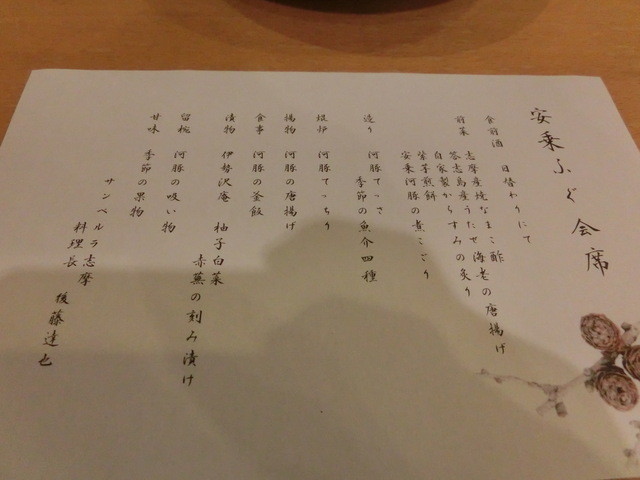 安乗ふぐ会席
食前酒 日替わりにて
前菜 志摩産焼なまこ酢
答志島産うたせ海老の唐揚げ
自家製からすみの炙り
紫芋煎餅
安乗河豚の煮こごり
造り 河豚てっさ
季節の魚介四種
焜炉 河豚てっちり
揚物 河豚の唐揚げ
食事 河豚の釜飯
漬物 伊勢沢庵 柚子白菜
赤蕪の刻み漬け
留椀 河豚の吸い物
甘味 季節の果物
サンペルラ志摩
料理長 後藤達也